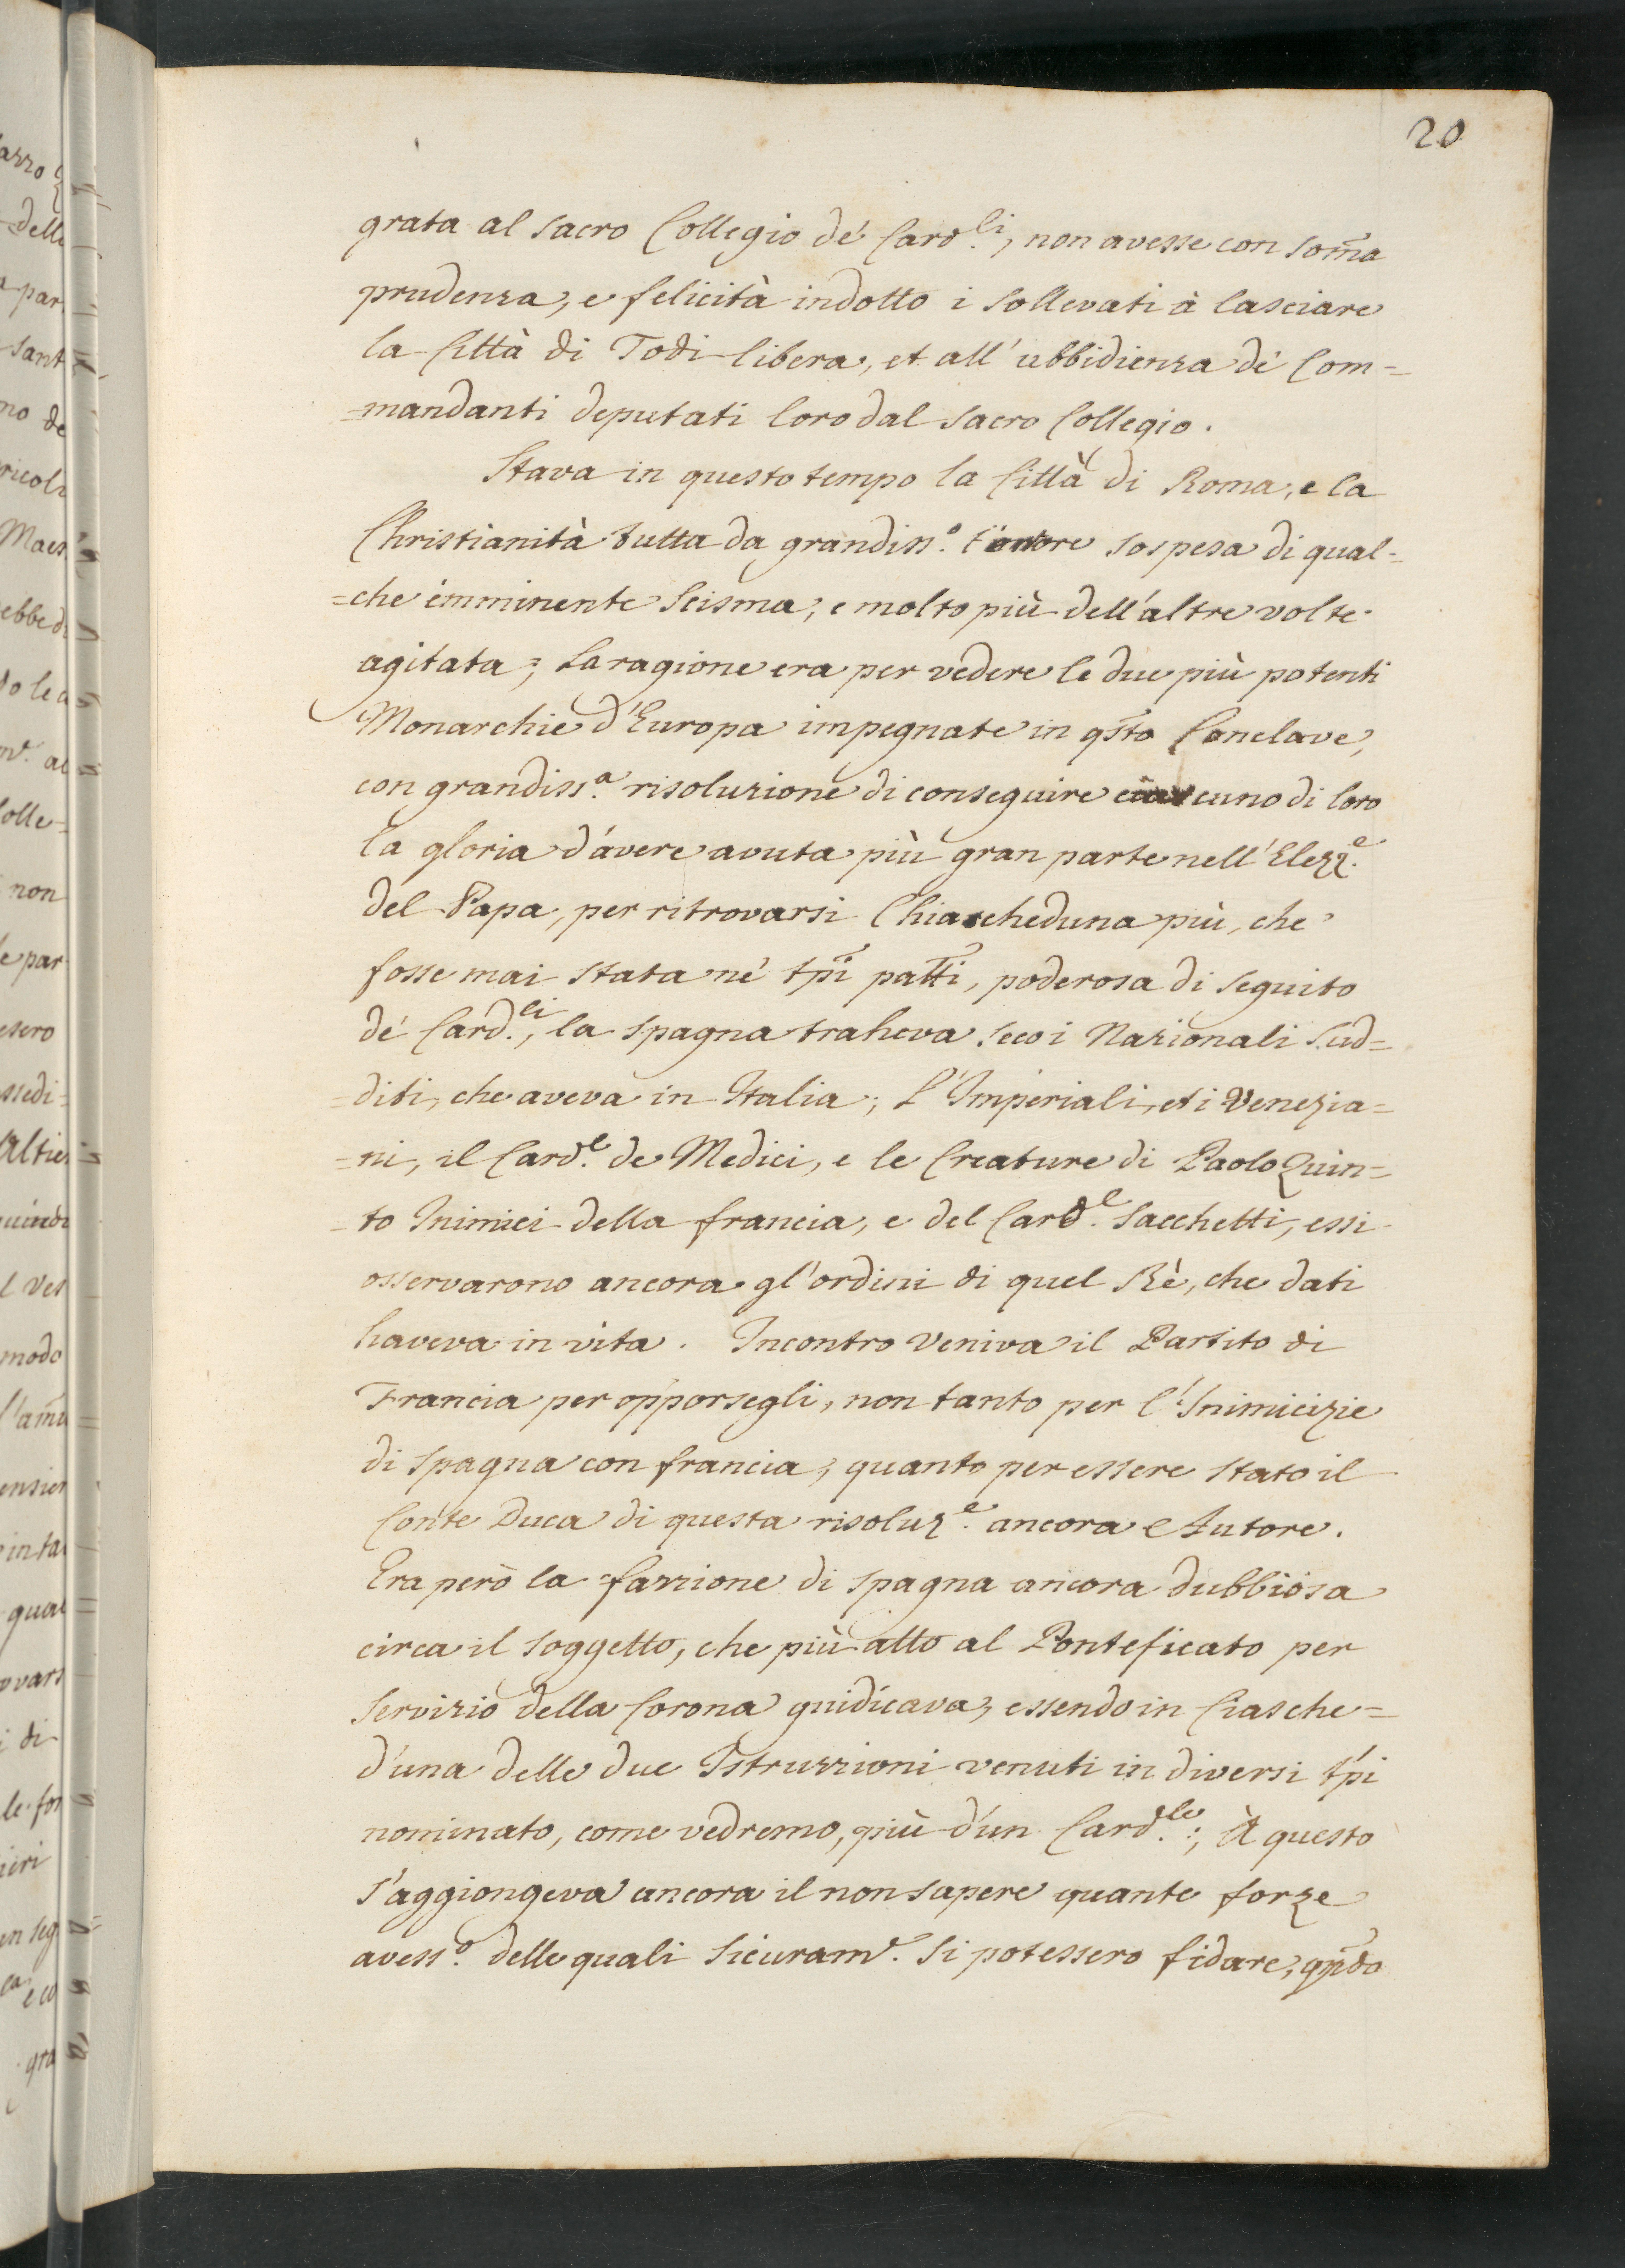 20
grata al sacro Collegio de' Card.li, non avesse con som̃a
prudenza, e felicità indotto i sollevati à lasciare
la Città di Todi libera, et all'ubbidienza de' Com=
=mandanti deputati loro dal sacro Collegio.
Stava in questo tempo la Città di Roma, e la
Christianità tutta da grandiss.o timore sospesa di qual=
=che imminente Scisma, e molto più dell'altre volte
agitata; La ragione era per vedere le due più potenti
Monarchie d'Europa impegnate in qsto Conclave,
con grandiss.a risoluzione di conseguire ciascuno di loro
la gloria d'avere avuta più gran parte nell'Elezz.e
del Papa, per ritrovarsi Chiascheduna più, che
fosse mai stata ne' tpi patti, poderosa di seguito
de' Card.li, la Spagna traheva seco i Nazionali Sud=
=diti, che aveva in Italia; l'Imperiali, et i Venezia=
=ni, il Card.e de Medici, e le Creature di Paolo Quin=
=to Inimici della francia, e del Card.e Sacchetti, essi
osservarono ancora gl'ordini di quel Rè, che dati
haveva in vita. Incontro veniva il Partito di
Francia per opporsegli, non tanto per l'Inimicizie
di Spagna con francia, quanto per essere stato il
Conte Duca di questa risoluz.e ancora Autore.
Era però la fazzione di Spagna ancora dubbiosa
circa il soggetto, che più atto al Ponteficato per
servizio della Corona guidicava, essendo in Ciasche=
d'una delle due Istruzzioni venuti in diversi tpi
nominato, come vedremo, più d'un Card.le; À questo
s'aggiongeva ancora il non sapere quante forze
avess.o delle quali sicuram.e si potessero fidare, qndo